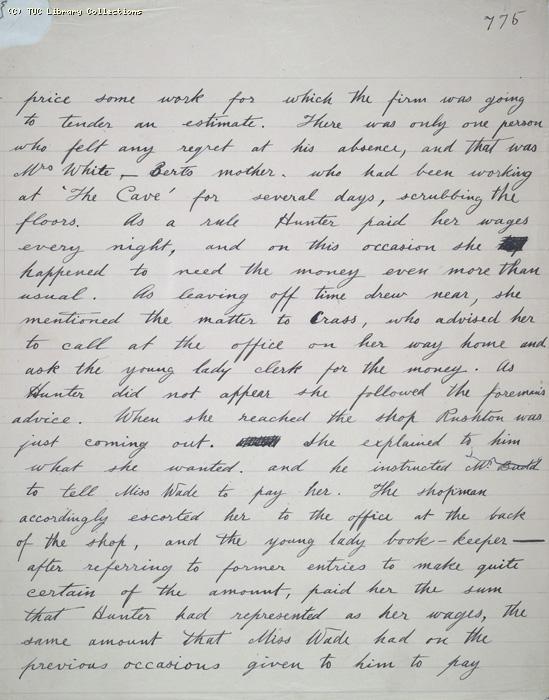 (C) TUC Library Collections
775
price some work for which the firm was going
to tender an estimate. There was only one person
who felt any regret at his absence, and that was
Mrs White, – Berts mother. who had been working
at 'The Cave' for several days, scrubbing the
floors. As a rule Hunter paid her wages
every night, and on this occasion she
happened to need the money even more than
usual. As leaving off time drew near, she
mentioned the matter to Crass, who advised her
to call at the office on her way home and
ask the young lady clerk for the money. As
Hunter did not appear she followed the foreman's
advice. When she reached the shop Rushton was
just coming out. She explained to him
what she wanted. and he instructed Mr. Budd
to tell Miss Wade to pay her. The shopman
accordingly escorted her to the office at the back
of the shop, and the young lady book-keeper —
after referring to former entries to make quite
certain of the amount, paid her the sum
that Hunter had represented as her wages, the
same amount that Miss Wade had on the
previous occasions given to him to pay